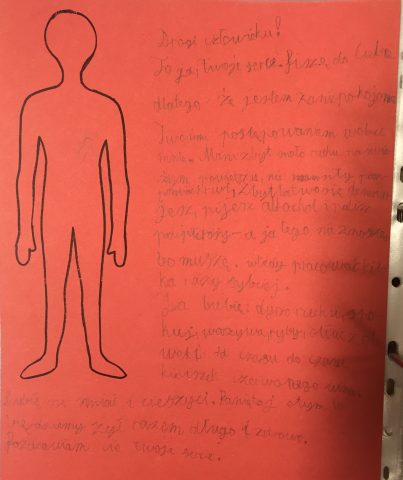 Drogi człowieku!
To ja, twoje serce. Piszę do Ciebie
dlatego że jestem zaniepokojone
Twoim postępowaniem wobec
mnie. Mam zbyt mało ruchu na
na
Zbyt łatwo się denerwu
jesz, pijesz alkohol i palisz
papierosy - a ja tego nie znoszę
bo muszę. wtedy pracować kil
ka razy szybciej.
Ja lubię: dużo ruchu,
warzywa, ryby,
od czasu do czasu
czerwonego wina.
Lubię się śmiać i cieszyć. Pamiętaj o tym, to
będziemy żyli razem długo i zdrowo.
Pozdrawiam cię Twoje serce.